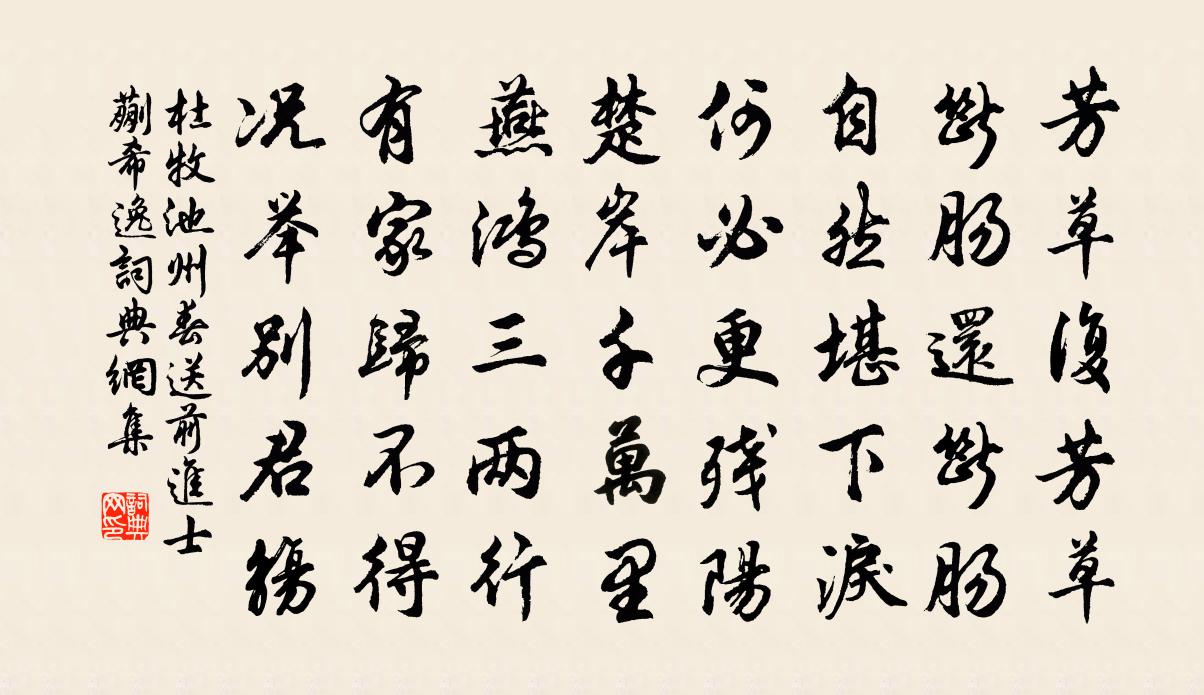 芳草復芳草
斷腸還斷腸
自然堪下淚
何必更残陽
楚岸千萬里
燕鴻三两行
有家歸不得
况举別君觴
杜牧池州春送前進士
蒯希逸詞典網集
詞典
网印